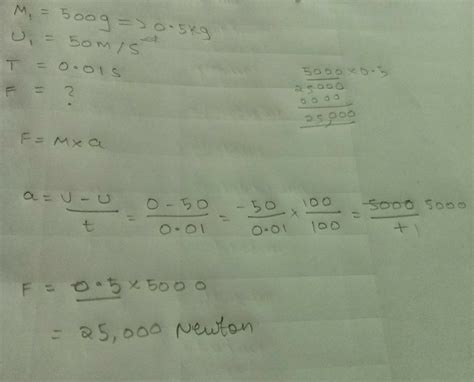 M₁ = 500g => 0.5kg
U₁ = 50m/s
T = 0.01s
F = ?
5000 × 0.5
25000
0000
25,000
F = M × a
a = U - U / t = 0 - 50 / 0.01 = -50 / 0.01 × 100 / 100 = -5000 / +1 5000
F = 0.5 × 5000
= 25,000 Newton